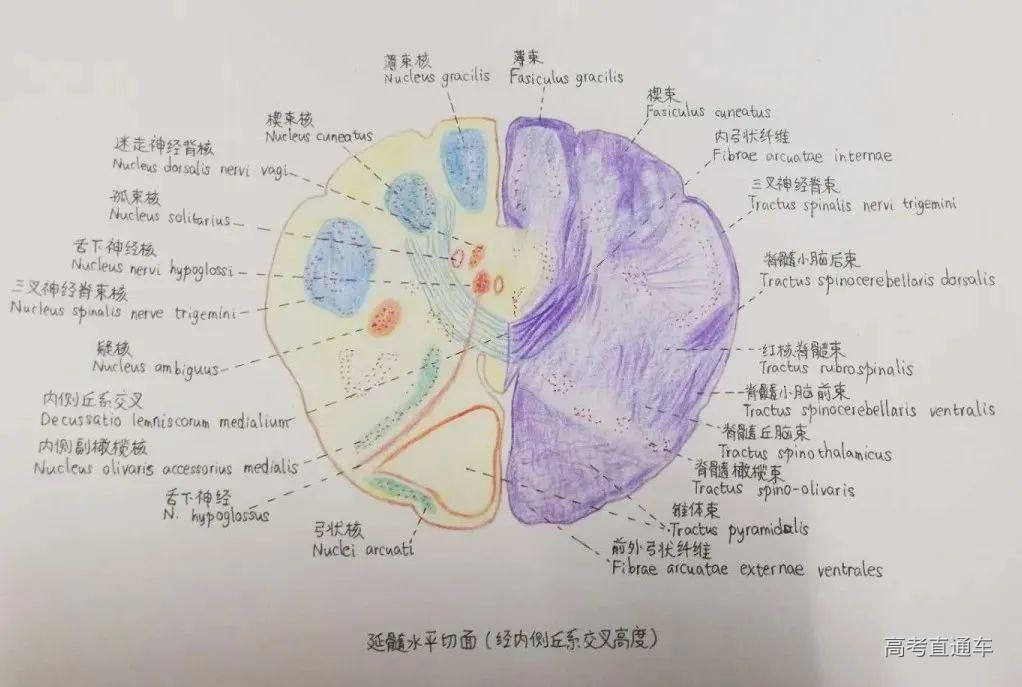 薄束核
Nucleus gracilis
薄束
Fasiculus gracilis
楔束核
Nucleus cuneatus
楔束
Fasiculus cuneatus
迷走神经背核
Nucleus dorsalis nervi vagi
内弓状纤维
Fibrae arcuatae internae
孤束核
Nucleus solitarius
三叉神经脊束
Tractus spinalis nervi trigemini
舌下神经核
Nucleus nervi hypoglossi
脊髓小脑后束
Tractus spinocerebellaris dorsalis
三叉神经脊束核
Nucleus spinalis nerve trigemini
疑核
Nucleus ambiguus
红核脊髓束
Tractus rubrospinalis
内侧丘系交叉
Decussatio lemniscorum medialium
脊髓小脑前束
Tractus spinocerebellaris ventralis
内侧副橄榄核
Nucleus olivaris accessorius medialis
脊髓丘脑束
Tractus spinothalamicus
脊髓橄榄束
Tractus spino-olivaris
舌下神经
N. hypoglossus
锥体束
Tractus pyramidalis
弓状核
Nuclei arcuati
前外弓状纤维
Fibrae arcuatae externae ventrales
延髓水平切面(经内侧丘系交叉高度)
高考直通车